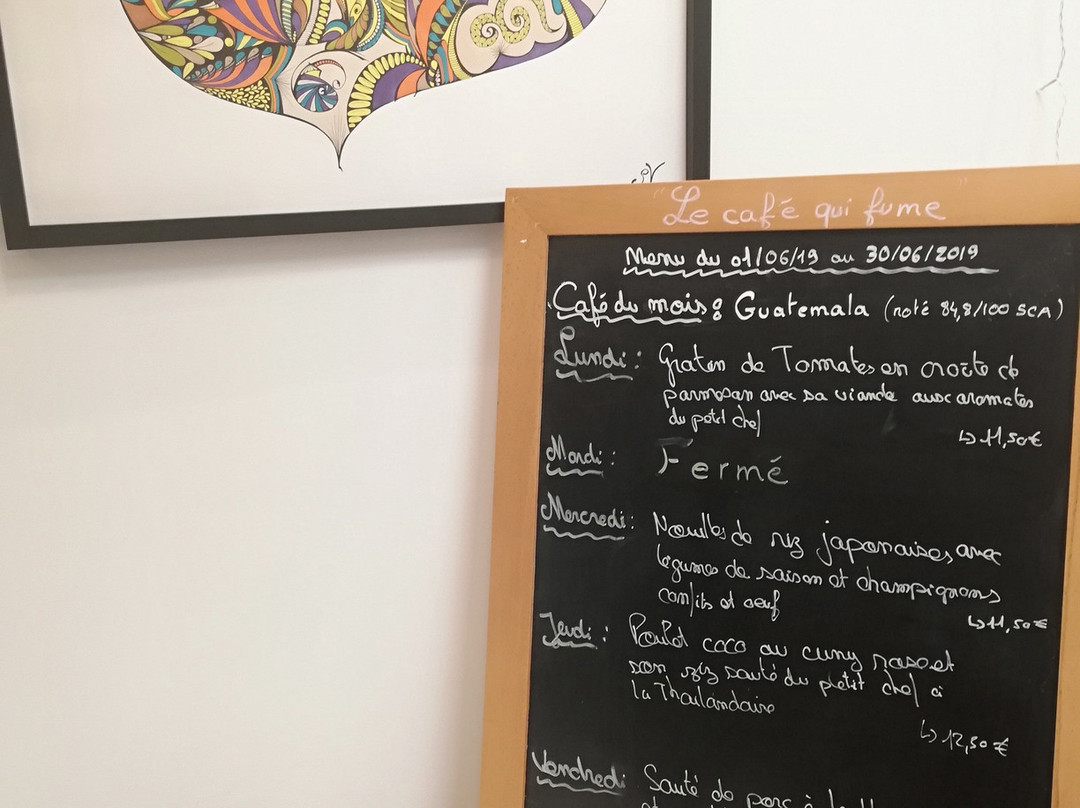 "Le café qui fume"
Menu du 01/06/19 au 30/06/2019
Café du mois: Guatemala (noté 84,8/100 SCA)
Lundi: Gratin de Tomates en croûte de
parmesan avec sa viande aux aromates
du petit chef
↳ 11,50€
Mardi: Fermé
Mercredi: Nouilles de riz japonaises, avec
légumes de saison et champignons
confits et oeuf
↳ 11,50€
Jeudi: Poulet coco au curry rose et
son riz sauté du petit chef à
la Thaïlandaise
↳ 12,50€
Vendredi: Sauté de porc à